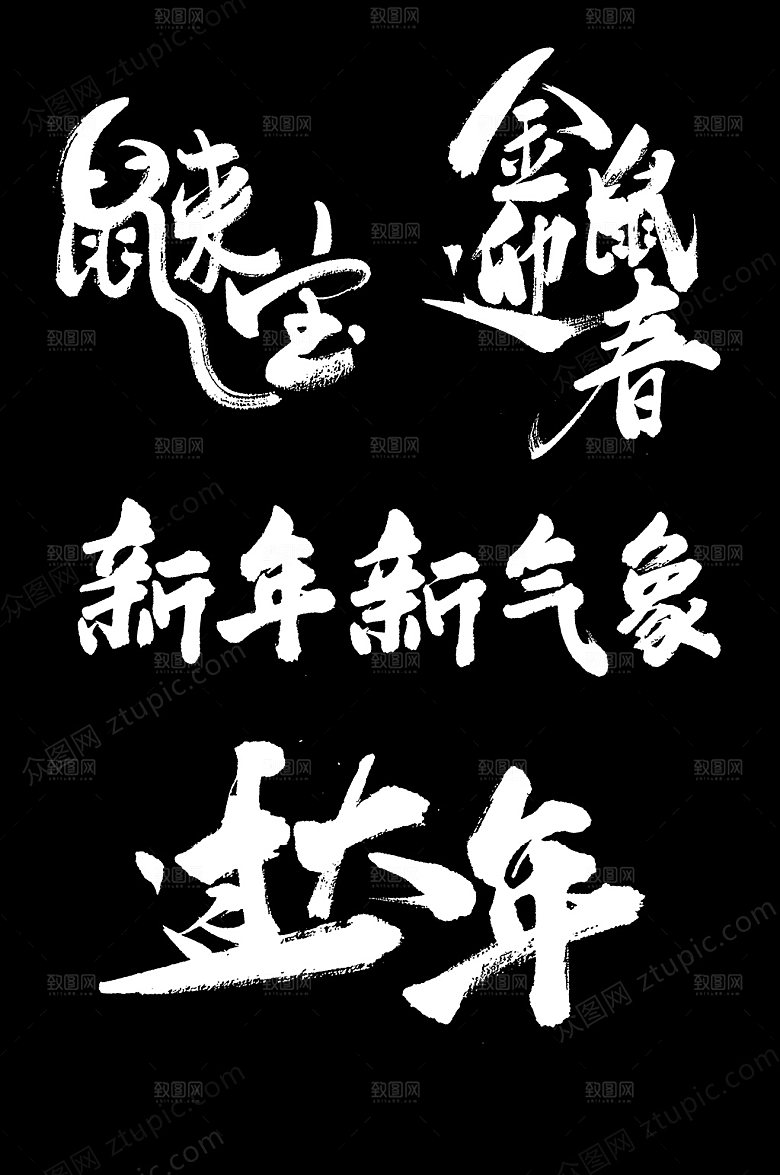 鼠来宝
金鼠迎春
新年新气象
过大年
众图网 ztupic.com
致图网